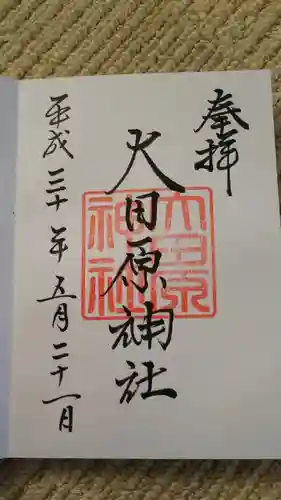 奉拝
大田原神社
大田原神社
平成三十年五月二十一日